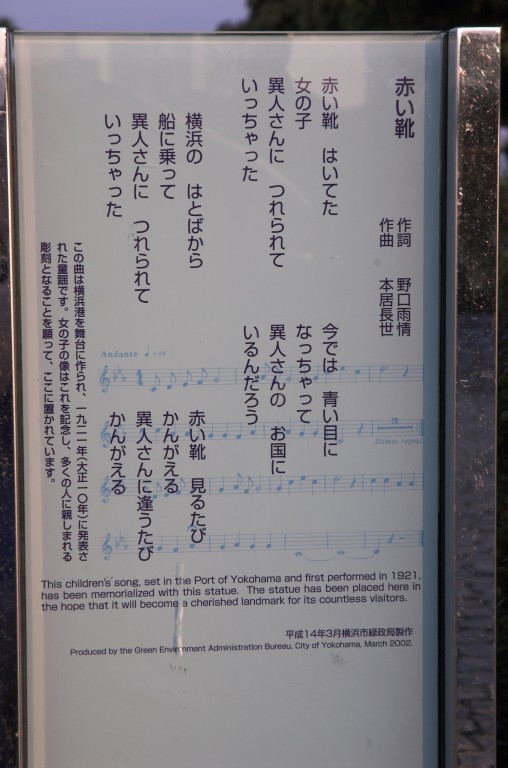 赤い靴
作詞 野口雨情
作曲 本居長世
赤い靴 はいてた
女の子
異人さんに つれられて
いっちゃった
横浜の はとばから
船に乗って
異人さんに つれられて
いっちゃった
今では 青い目に
なっちゃって
異人さんの お国に
いるんだろう
赤い靴 見るたび
かんがえる
異人さんに逢うたび
かんがえる
Andante
3
3times repeat
この曲は横浜港を舞台に作られ、一九二一年(大正一〇年)に発表さ
れた童謡です。女の子の像はこれを記念し、多くの人に親しまれる
彫刻となることを願って、ここに置かれています。
This children's song, set in the Port of Yokohama and first performed in 1921,
has been memorialized with this statue. The statue has been placed here in
the hope that it will become a cherished landmark for its countless visitors.
平成14年3月横浜市緑政局製作
Produced by the Green Environment Administration Bureau, City of Yokohama, March 2002.